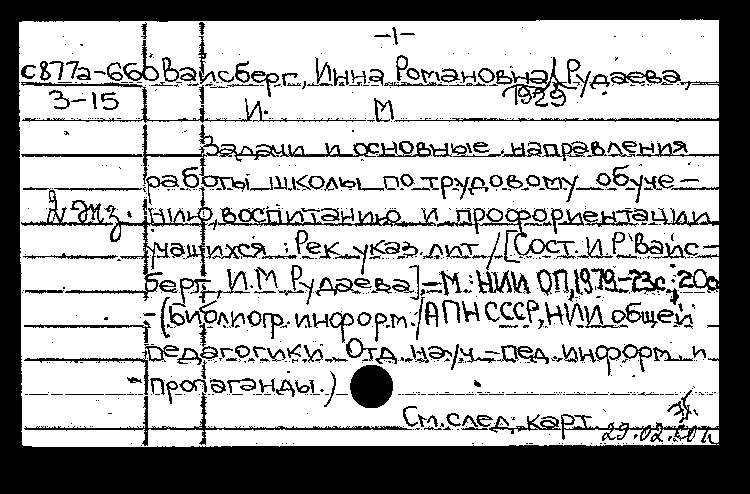 -1-
с877а-660 Вайсберг, Инна Романовна, Рудаева,
3-15 И. М 1929
Задачи и основные направления
работы школы по трудовому обуче-
2 экз. нию, воспитанию и профориентации
учащихся: Рек. указ. лит / [Сост. И.Р. Вайс-
берг, И.М. Рудаева]. - М.: НИИ ОП, 1979. - 23с.; 20с
- (Библиогр. информ. / АПН СССР, НИИ общей
педагогики. Отд. науч.-пед. информ. и
пропаганды.)
См. след. карт.